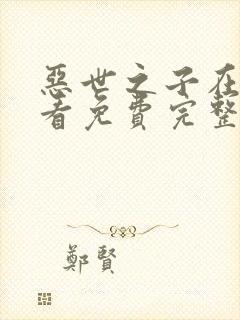 惡世之子在
看免費完整
鄭賢